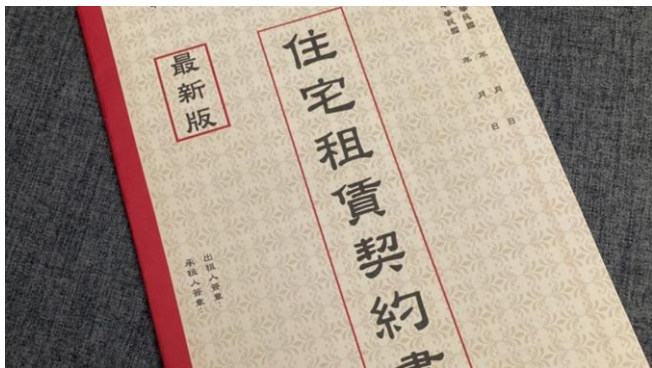 中華民國 年 月 日
華民國 年 月 日
住宅租賃契約書
最新版
出租人簽章：
承租人簽章：